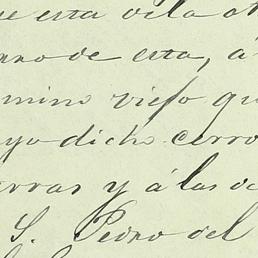 que esta dela ot
rno de esta, á
mino viejo qu
yo dicho cerro
erras y á las de
S. Pedro del